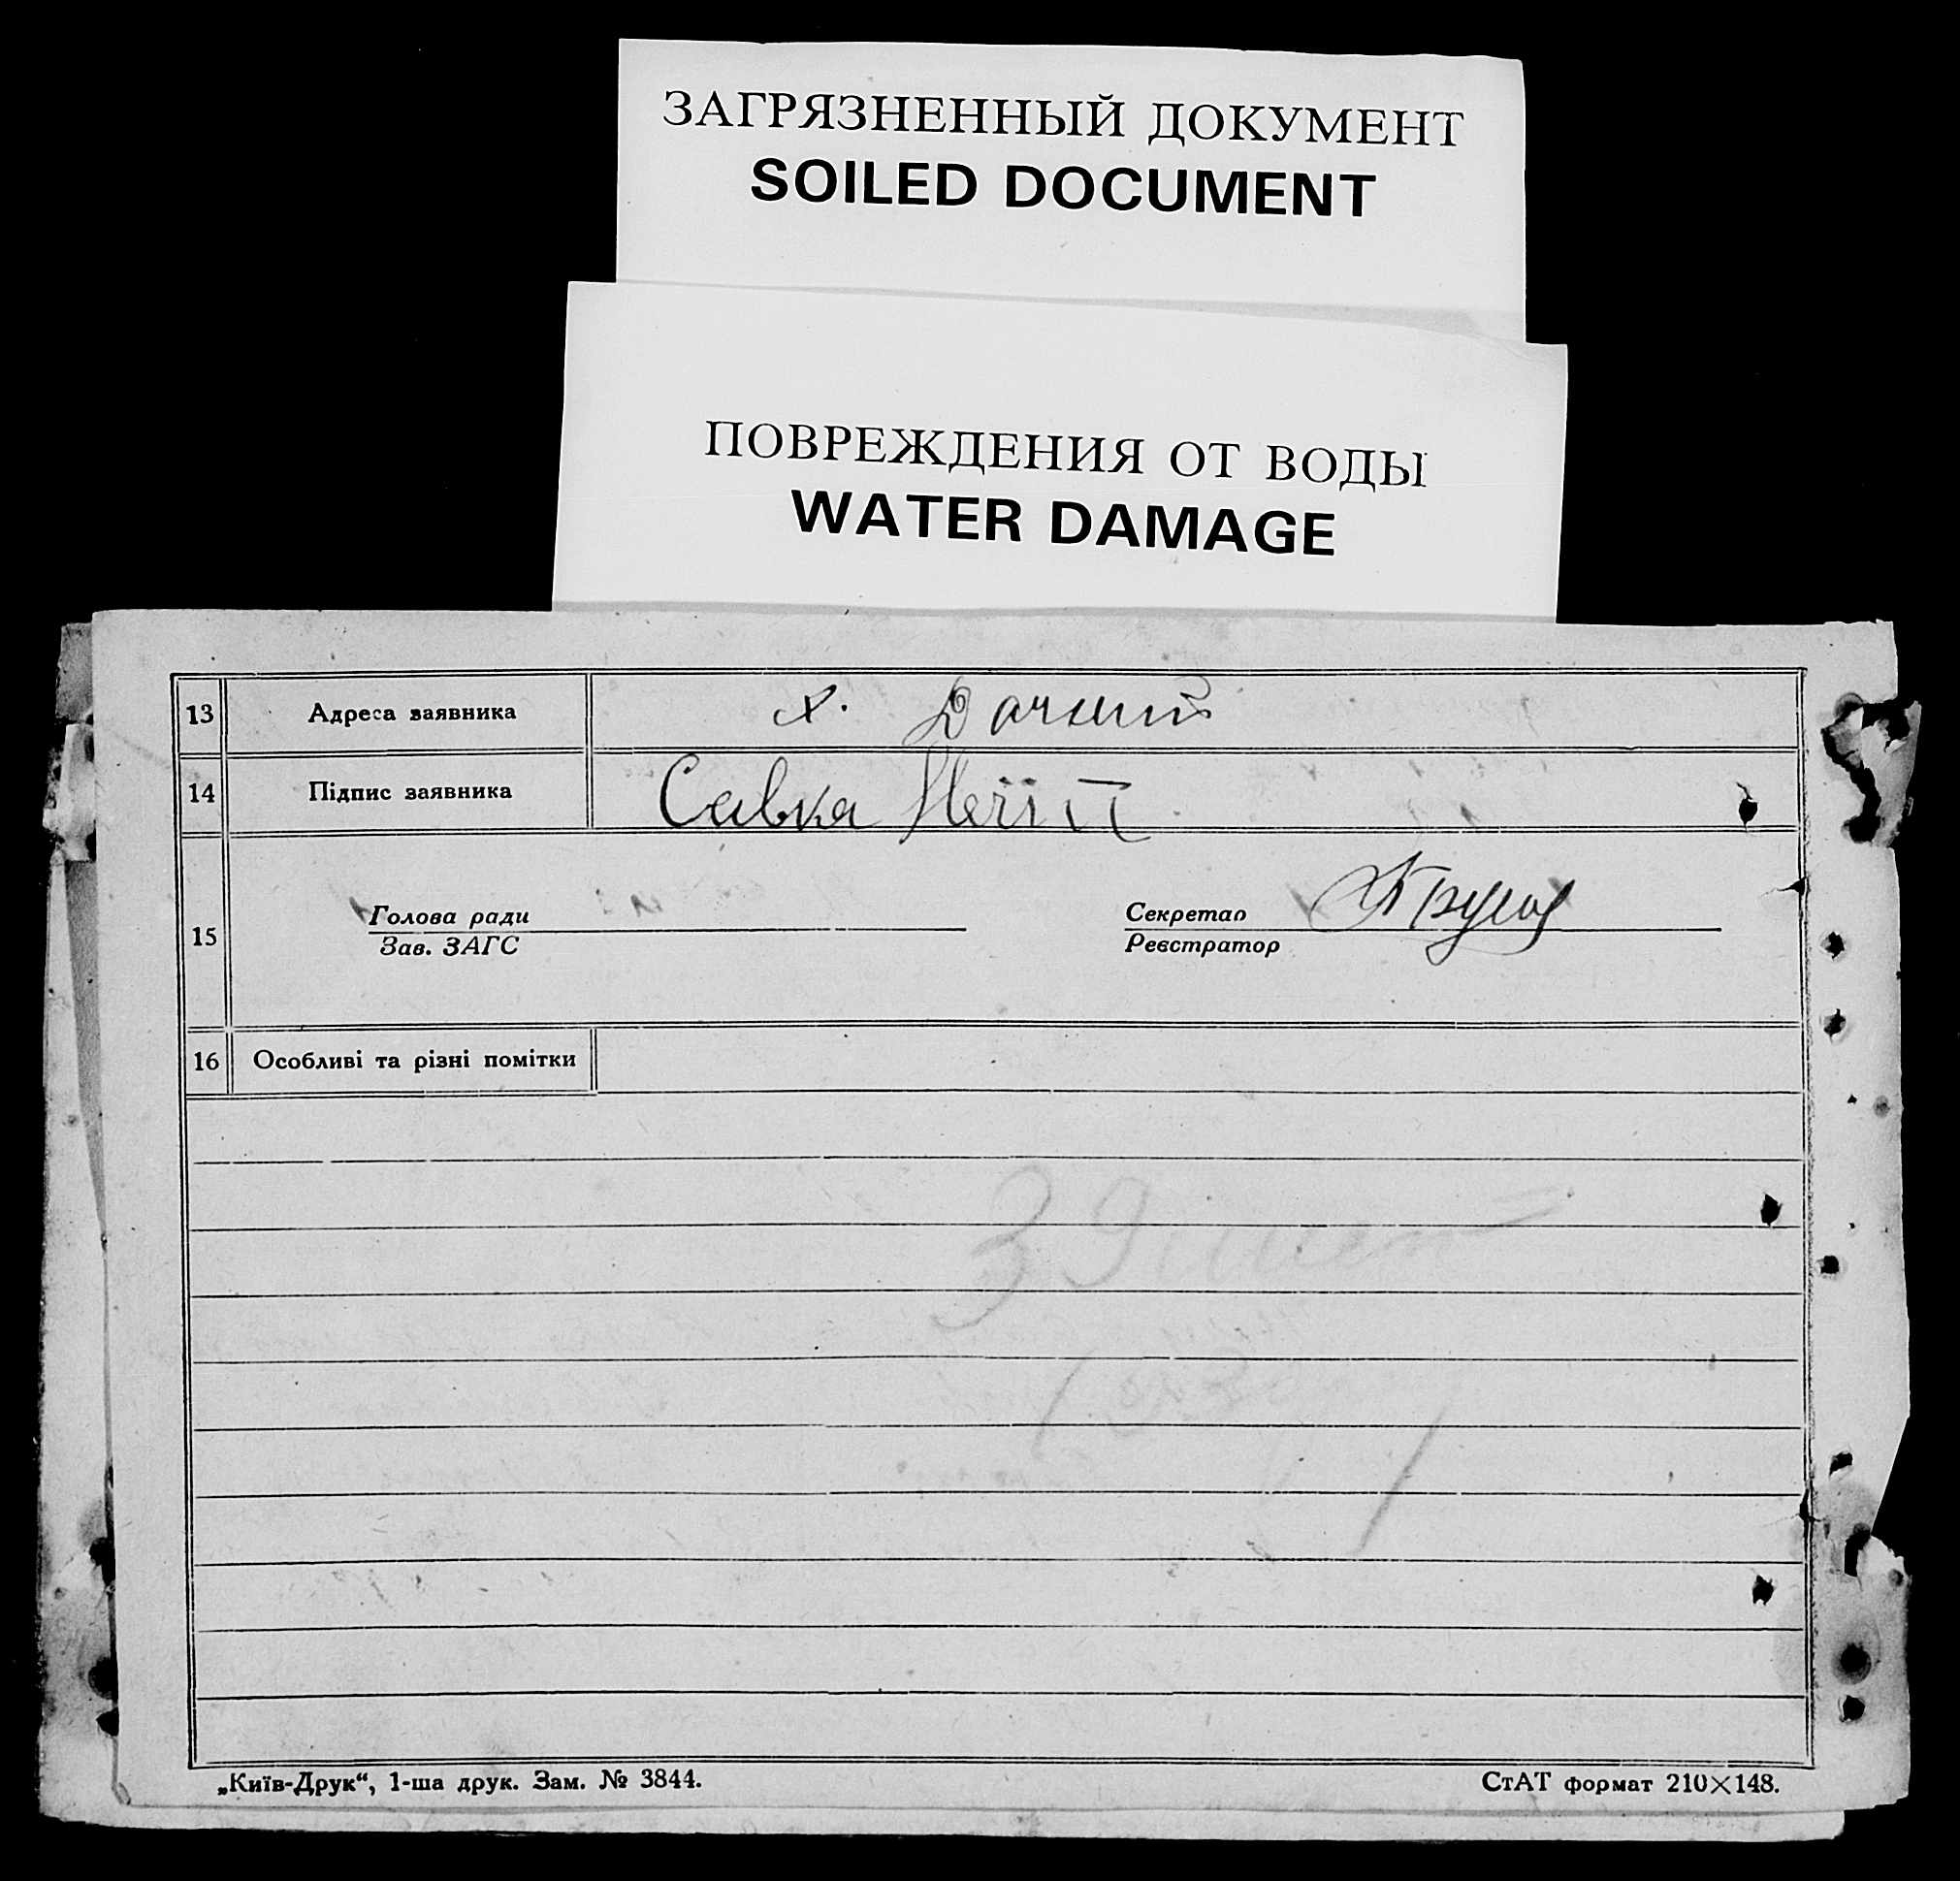 ЗАГРЯЗНЕННЫЙ ДОКУМЕНТ
SOILED DOCUMENT
ПОВРЕЖДЕНИЯ ОТ ВОДЫ
WATER DAMAGE
13 Адреса заявника х.
14 Підпис заявника Савка
15 Голова ради Секретар
Зав. ЗАГС Реєстратор
16 Особливі та різні помітки
„Київ-Друк“, 1-ша друк. Зам. № 3844. СтАТ формат 210×148.